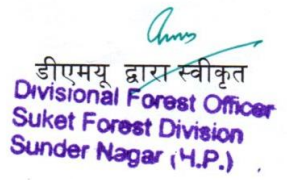 डीएमयू द्वारा स्वीकृत
Divisional Forest Officer
Suket Forest Division
Sunder Nagar (H.P.)